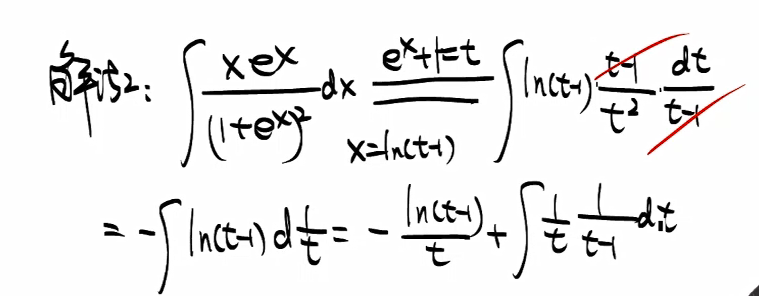 解法2: ∫ \frac{xe^x}{(1+e^x)^2} dx \xlongequal[x=ln(t-1)]{e^x+1=t} ∫ ln(t-1) \frac{t-1}{t^2} · \frac{dt}{t-1}
= -∫ ln(t-1) d\frac{1}{t} = -\frac{ln(t-1)}{t} + ∫ \frac{1}{t} \frac{1}{t-1} dt